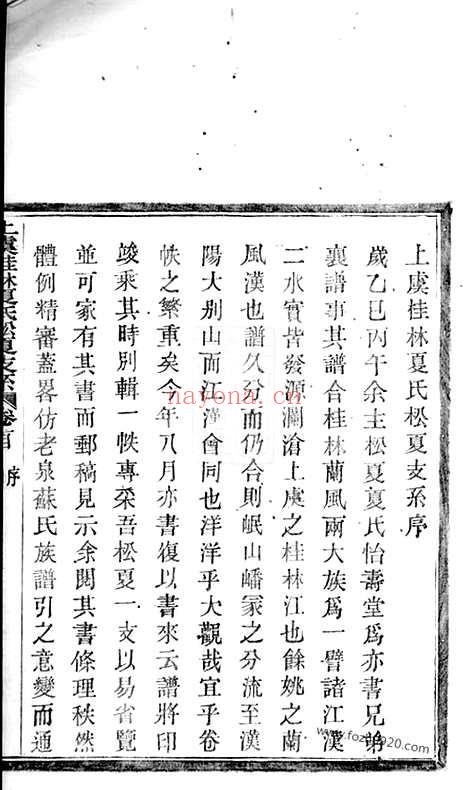 上虞桂林夏氏松夏支系序
歲乙巳丙午余主松夏夏氏怡壽堂爲亦書兄弟
襄譜事其譜合桂林蘭風兩大族爲一譬諸江漢
二水實皆發源瀾滄上虞之桂林江也餘姚之蘭
風漢也譜久分而仍合則岷山嶓冢之分流至漢
陽大别山而江漢會同也洋洋乎大觀哉宜乎卷
帙之繁重矣今年八月亦書復以書來云譜將印
竣乘其時別輯一帙專采吾松夏一支以易省覽
並可家有其書而郵稿見示余閱其書條理秩然
體例精審蓋畧仿老泉蘇氏族譜引之意變而通
上虞桂林夏氏松夏支系圖 卷首 序
nayona.cn
www.fozu2020.com